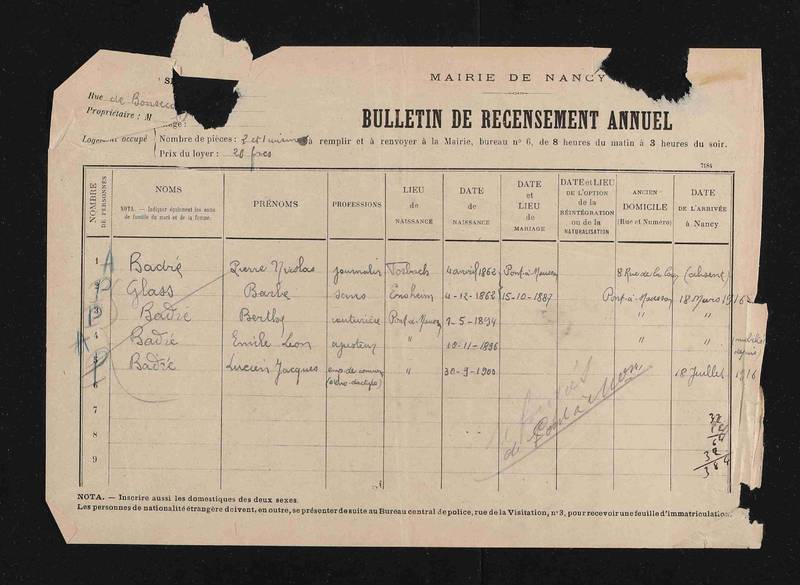 MAIRIE DE NANCY
Rue de Bonsec
Propriétaire : M
BULLETIN DE RECENSEMENT ANNUEL
Logement occupé
Nombre de pièces :
à remplir et à renvoyer à la Mairie, bureau n° 6, de 8 heures du matin à 3 heures du soir.
Prix du loyer : 28 frcs
7184
NOMBRE DE PERSONNES
NOMS
NOTA. — Indiquer également les noms de famille du mari et de la femme.
PRÉNOMS
PROFESSIONS
LIEU de NAISSANCE
DATE de NAISSANCE
DATE et LIEU de MARIAGE
DATE et LIEU DE L'OPTION de la RÉINTÉGRATION ou de la NATURALISATION
ANCIEN DOMICILE (Rue et Numéro)
DATE DE L'ARRIVÉE à Nancy
1 A Badré Pierre Nicolas journalier Forbach 4 avril 1862 Pont-à-Mousson 8 Rue de (absent)
2 P Glass Barbe sans Ensheim 4-12-1862 15-10-1887 Pont-à-Mousson 18 Mars 1916
3 P Badré Berthe couturière Pont-à-Mousson 2-5-1894 " "
4 A Badré Emile Léon " 10-11-1896 " " mobilisé depuis
5 P Badré Lucien Jacques (sténo-dactylo) " 30-9-1900 18 Juillet 1916
6
7
8
9
de Pont à Mousson
NOTA. — Inscrire aussi les domestiques des deux sexes.
Les personnes de nationalité étrangère doivent, en outre, se présenter de suite au Bureau central de police, rue de la Visitation, n° 3, pour recevoir une feuille d'immatriculation.